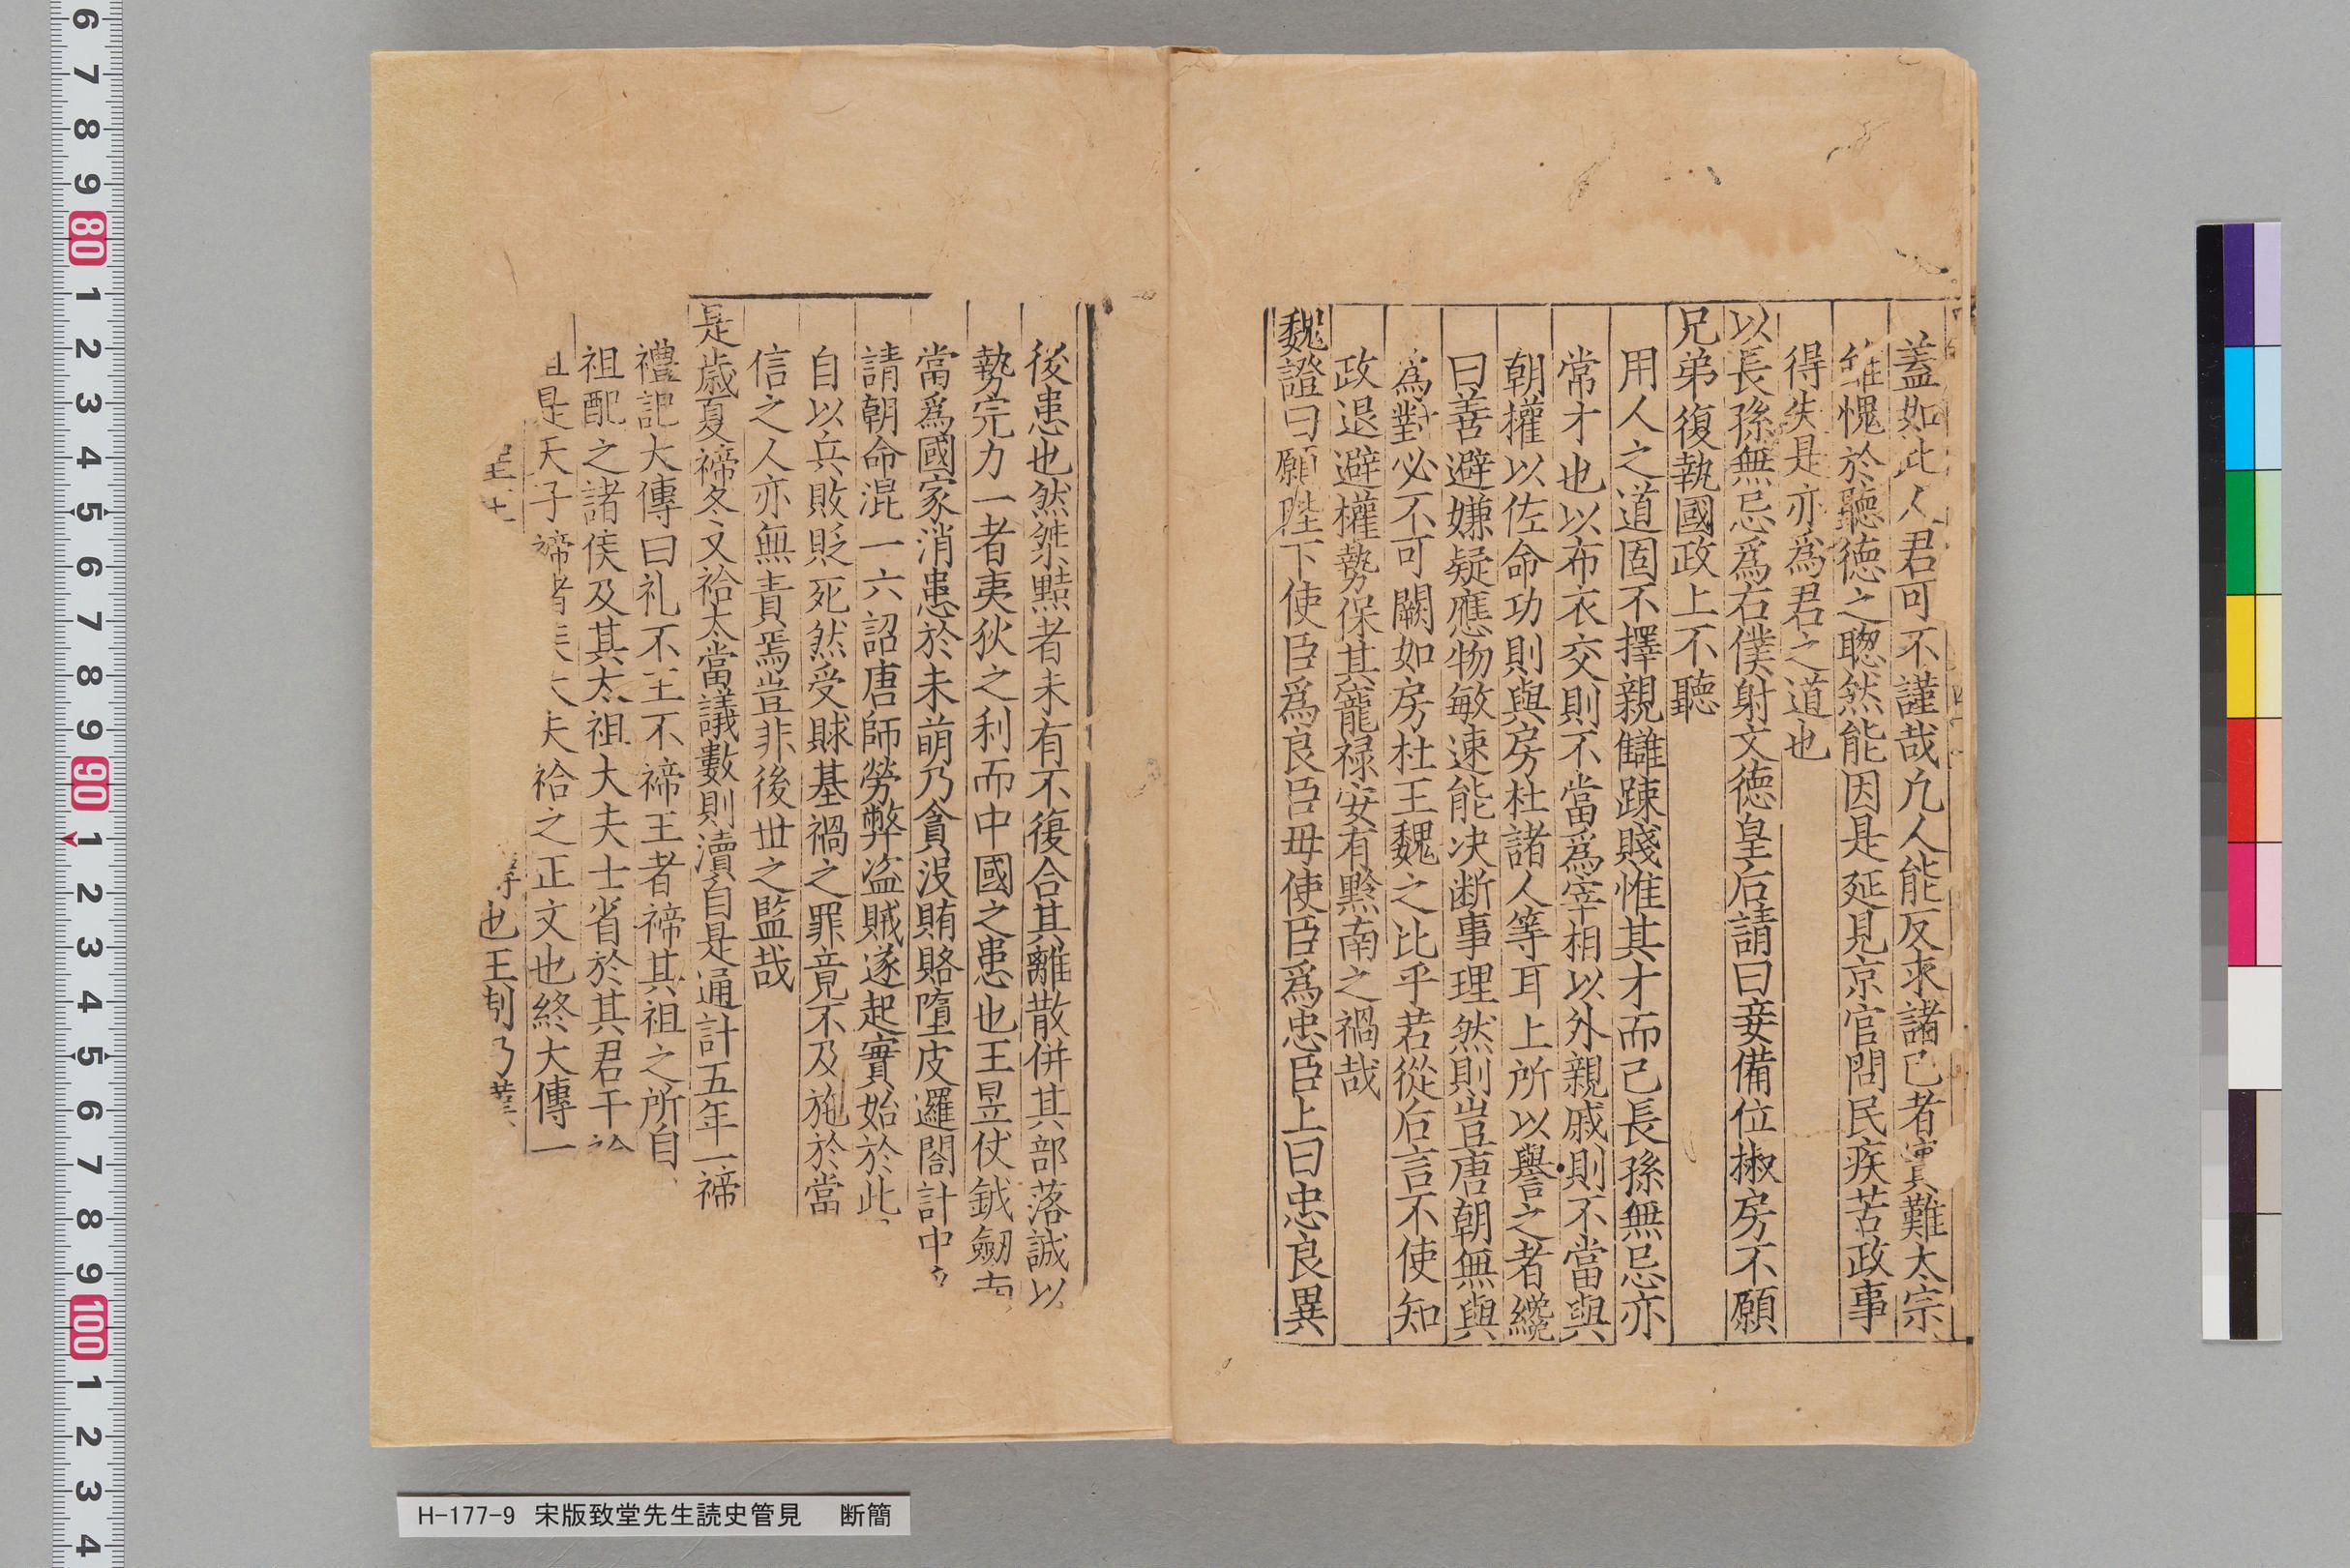 蓋如此人君可不謹哉凢人能反求諸己者實難太宗
雖愧於聽德之聦然能因是延見京官問民疾苦政事
得失是亦爲君之道也
以長孫無忌爲右僕射文德皇后請曰妾備位椒房不願
兄弟復執國政上不聽
用人之道固不擇親讎踈賤惟其才而已長孫無忌亦
常才也以布衣交則不當爲宰相以外親戚則不當與
朝權以佐命功則與房杜諸人等耳上所以譽之者纔
曰善避嫌疑應物敏速能决断事理然則豈唐朝無與
爲對必不可闕如房杜王魏之比乎若從后言不使知
政退避權勢保其寵禄安有黔南之禍哉
魏證曰願陛下使臣爲良臣毋使臣爲忠臣上曰忠良異
後患也然桀黠者未有不復合其離散併其部落誠以
勢完力一者夷狄之利而中國之患也王昱仗鉞劒南
當爲國家消患於未萌乃貪沒賄賂墮皮邏閤計中
請朝命混一六詔唐師勞弊盗賊遂起實始於此
自以兵敗貶死然受賕基禍之罪竟不及施於當
信之人亦無責焉豈非後丗之監哉
是歳夏禘冬又祫太當議數則瀆自是通計五年一禘
禮記大傳曰礼不王不禘王者禘其祖之所自
祖配之諸侯及其太祖大夫士省於其君干祫
是天子禘 夫祫之正文也終大傳一
也王制乃